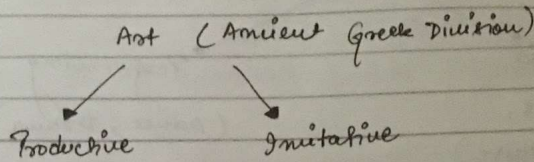 Art (Ancient Greek Division)
Productive Imitative